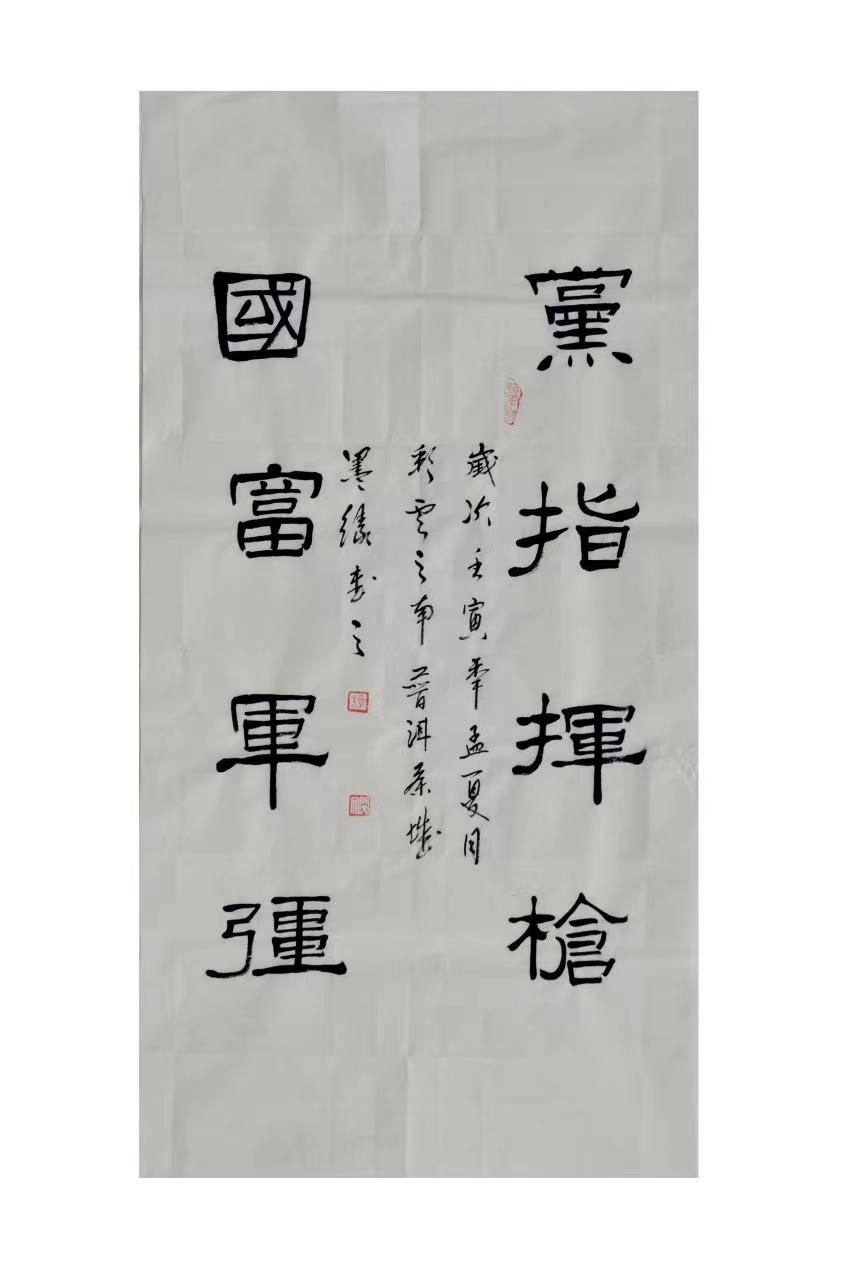 黨指揮槍
歲次壬寅年孟夏月
彩雲之南普洱茶城
墨緣書之
國富軍彊